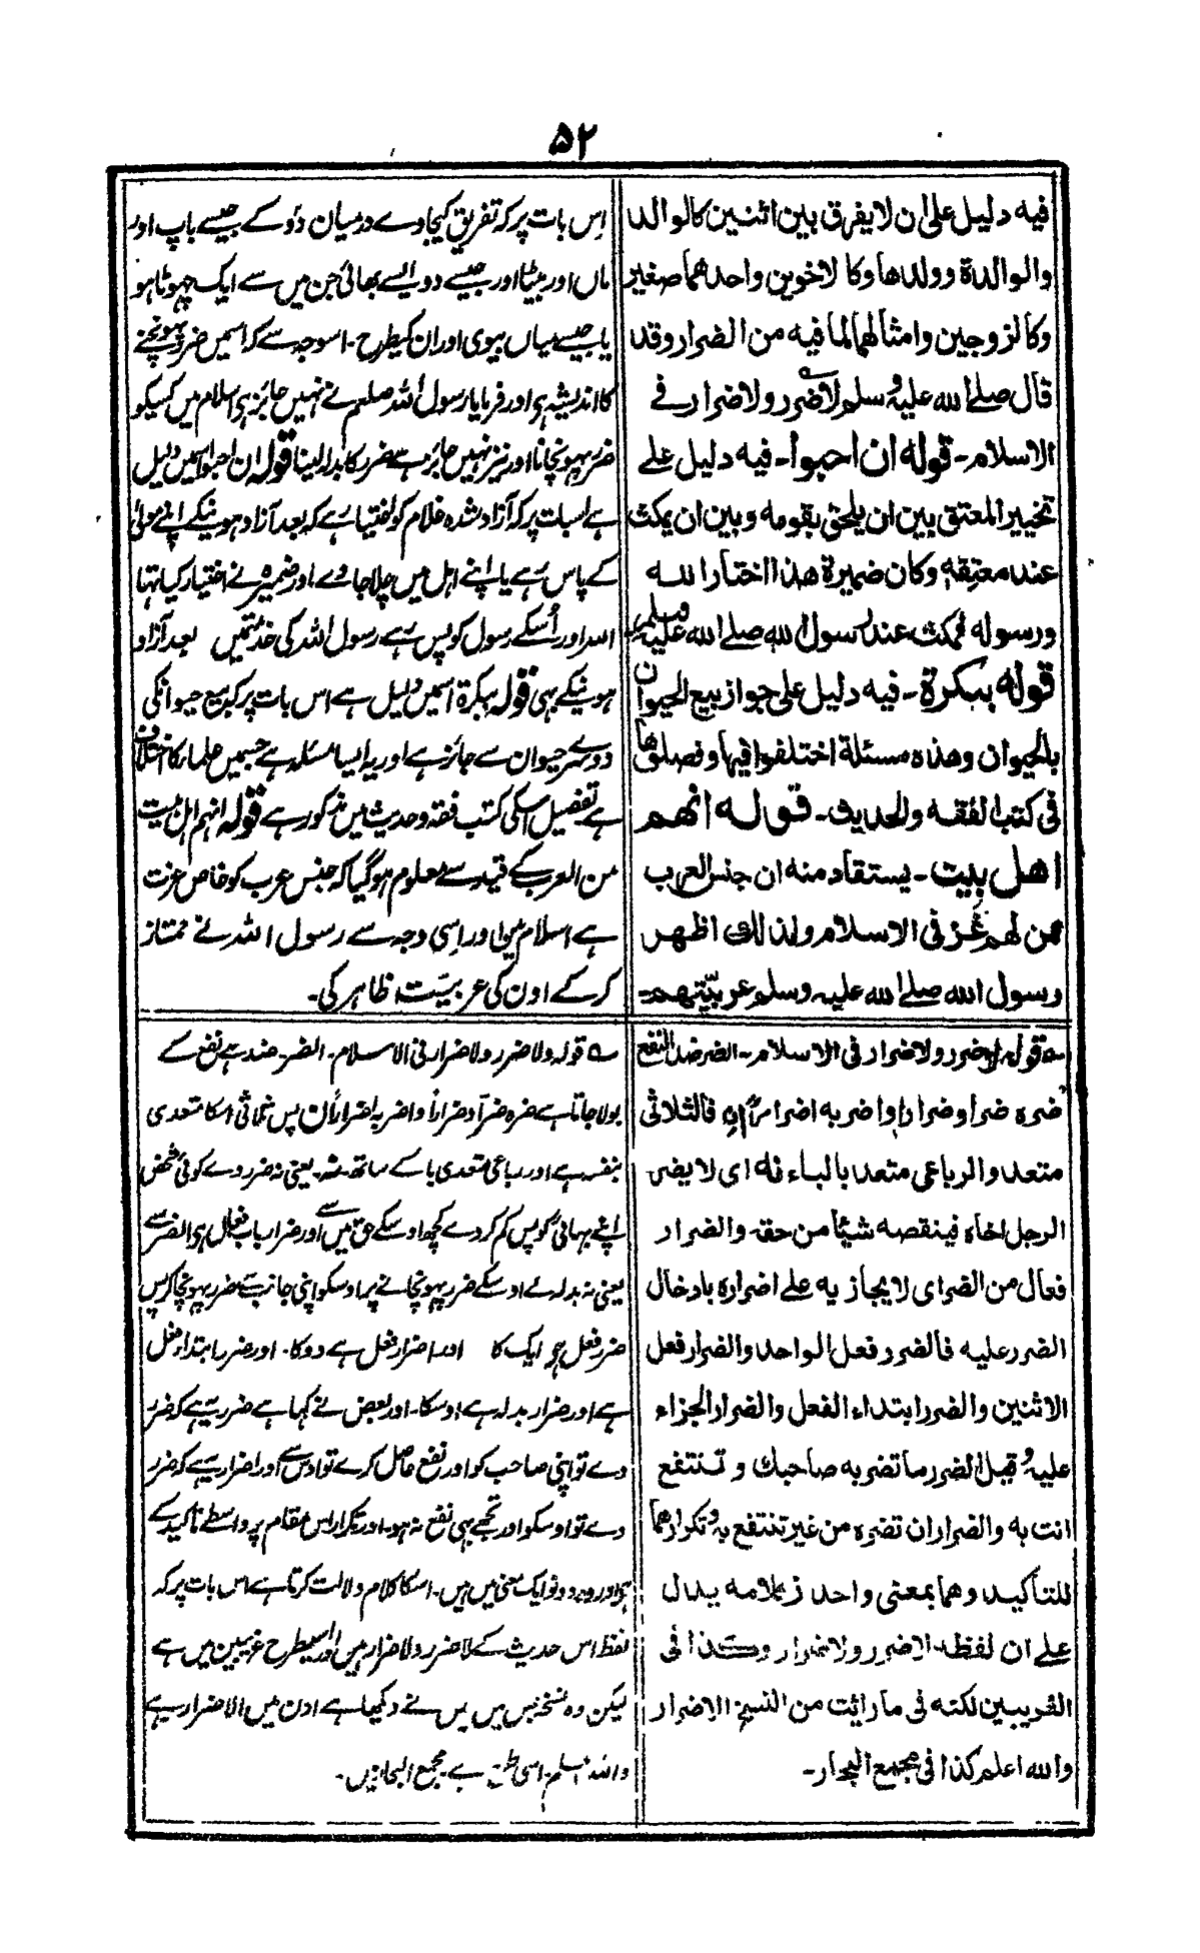 ۵۲
فيه دليل على ان لا يفرق بين اثنين كالوالد
والوالدة وولدها وكالاخوين واحدهما صغير
وكالزوجين وامثالهما لما فيه من الضرار وقد
قال صلى الله عليه وسلم لا ضرر ولا ضرار فى
الاسلام۔ قوله ان احبوا۔ فيه دليل على
تخيير المعتق بين ان يلحق بقومه وبين ان يمكث
عند معتقه وكان ضميرة هذا اختار الله
ورسوله فمكث عند رسول الله صلى الله عليه وسلم
قوله ببكرة۔ فيه دليل على جواز بيع الحيوان
بالحيوان وهذه مسئلة اختلفوا فيها وفصلوها
فى كتب الفقه والحديث۔ قوله انهم
اهل بيت۔ يستفاد منه ان جنس العرب
ممن لهم عز فى الاسلام ولذلك اظهر
رسول الله صلى الله عليه وسلم عربيّتهم۔
اِس بات پر کہ تفریق کیجاوے درمیان دو کے جیسے باپ اور
ماں اور بیٹا اور جیسے دو ایسے بھائی جن میں سے ایک چھوٹا ہو
یا جیسے میاں بیوی اور ان کیطرح۔ اسوجہ سے کہ اسمیں ضرر پہونچنے
کا اندیشہ ہی اور فرمایا رسول اللہ صلعم نے نہیں جائز ہی اسلام میں کسیکو
ضرر پہونچانا اور نیز نہیں جائز ہے ضرر کا بدلا لینا قولہ ان احبوا اسمیں دلیل
ہے اسبات پر کہ آزاد شدہ غلام کو اختیار ہے کہ بعد آزاد ہونیکے اپنے مولیٰ
کے پاس رہے یا اپنے اہل میں چلا جاوے اور ضمیرہ نے اختیار کیا تہا
اللہ اور اُسکے رسول کو پس رہے رسول اللہ کی خدمتمیں بعد آزاد
ہونیکے بہی قولہ ببکرة اسمیں دلیل ہے اس بات پر کہ بیع حیوانکی
دوسرے حیوان سے جائز ہے اور یہ ایسا مسئلہ ہے جسمیں علمار کا اختلاف
ہے تفصیل اسکی کتب فقہ و حدیث میں مذکور ہے قولہ انہم اہل بیت
من العرب کے قید سے معلوم ہوگیا کہ جنس عرب کو خاص عزت
ہے اسلام میں اور اِسی وجہ سے رسول اللہ نے ممتاز
کرکے اون کی عربیّت ظاہر کی۔
قوله لا ضرر ولا ضرار فى الاسلام۔ الضر ضد النفع
ضره ضرا وضرارا واضر به اضرارا فالثلاثى
متعد والرباعى متعد بالباء اى لا يضر
الرجل اخاه فينقصه شيئا من حقه والضرار
فعال من الضر اى لا يجازيه على اضراره بادخال
الضرر عليه فالضرر فعل الواحد والضرار فعل
الاثنين والضرر ابتداء الفعل والضرار الجزاء
عليه وقيل الضرر ما تضر به صاحبك وتنتفع
انت به والضرار ان تضره من غير تنتفع به وتكرارهما
للتأكيد وهما بمعنى واحد كلامه يدل
على ان لفظه لا ضرر ولا ضرار وكذا فى
الغريبين لكنه فى ما رأيت من النسخ الاضرار
والله اعلم كذا فى مجمع البحار۔
قولہ ولا ضرر ولا ضرار فی الاسلام۔ الضر۔ ضد ہے نفع کے
بولا جاتا ہے ضرہ ضرآ و ضرارا و اضر بہ اضرارا پس ثلاثی اسکا متعدی
بنفسہ ہے اور رباعی متعدی با کے ساتھ یعنی نہ ضرر دے کوئی شخص
اپنے بہائی کو پس کم کر دے کچھ اوسکے حق میں سے اور ضرار باب فعال ہی الضر سے
یعنی نہ بدلہ لے اوسکے ضرر پہونچانے پر اوسکو اپنی جانب سے ضرر پہونچا کر پس
ضرر فعل ہے ایک کا اور ضرار فعل ہے دو کا۔ اور ضرر ابتدا فعل
ہے اور ضرار بدلہ ہے اوسکا۔ اور بعض نے کہا ہے ضرر یہ ہے کہ ضرر
دے تو اپنی صاحب کو اور نفع حاصل کرے تو اوس سے اور اضرار یہ ہے کہ ضرر
دے تو اوسکو اور تجھے بہی نفع نہ ہو۔ اور تکرار اس مقام پر واسطے تاکید کے
ہی اور وہ دونو ایک معنی میں ہیں۔ اسکا کلام دلالت کرتا ہے اس بات پر کہ
لفظ اس حدیث کے لا ضرر ولا ضرار ہیں اور اسیطرح غریبین میں ہے
لیکن وہ نسخہ جس میں میں نے دیکھا ہے اون میں الاضرار ہے
واللہ اعلم اسی طرح ہے مجمع البحار میں۔